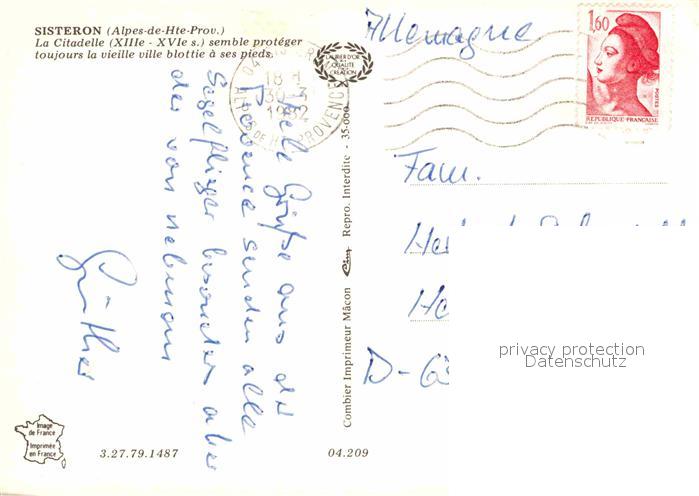 SISTERON (Alpes-de-Hte-Prov.)
La Citadelle (XIIIe - XVIe s.) semble protéger
toujours la vieille ville blottie à ses pieds.
LAURIER D'OR
QUALITÉ
CRÉATION
18 H
30-3
1982
ALPES DE HTE PROVENCE
Allemagne
1,60
POSTES
REPUBLIQUE FRANÇAISE
Fam.
D-
privacy protection
Datenschutz
Grüße aus der
Provence senden alle
Segelflieger besonders aber
der von nebenan
Günther
Combier Imprimeur Mâcon Cim Repro. Interdite - 35-000
Image
de France
Imprimée
en France
3.27.79.1487
04.209